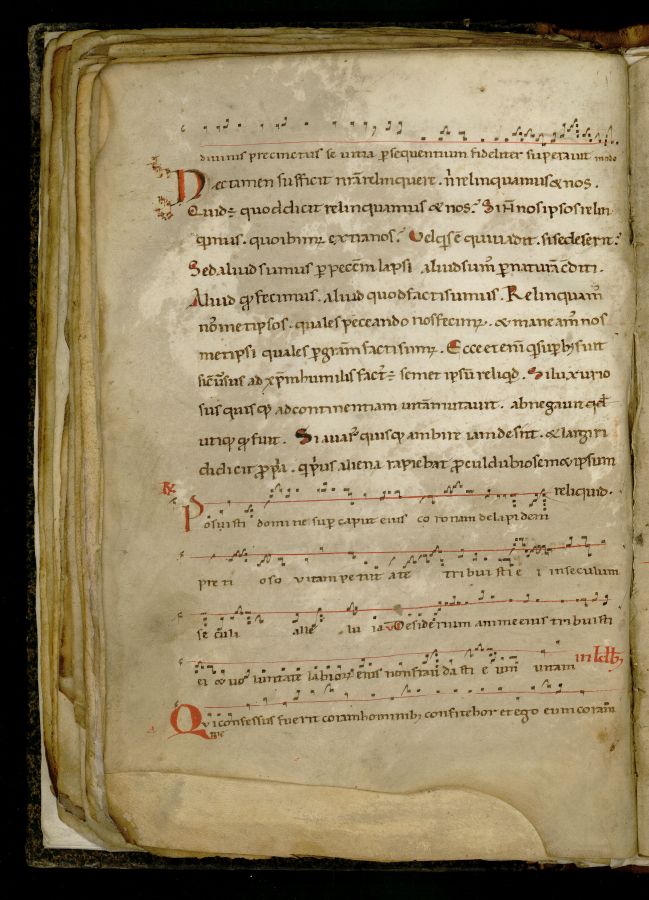 divinus precinctus se ultra psequentium fideliter superavit
Nec tamen sufficit nr̄a relinquere . n̄ relinquamus & nos .
Quid ÷ quod dicit relinquamus & nos . Si n̄ nos ipsos relin
qmus . quo ibim ext̄ nos . Vel qs ē qui vadit . si se deserit .
Sed aliud sumus p peccm̄ lapsi aliud sum̄ p naturā c̄diti .
Aliud qd fecimus . aliud quod facti sumus . Relinquam̄
nosmetipsos . quales peccando nos fecim . & maneam̄ nos
metipsi quales p grām facti sum . Ecce etem̄ q supbus fuit
si c̄versus ad xpm humilis fact ÷ semet ipsū reliqd . Si luxurio
sus quisq ad continentiam vitā mutavit . abnegavit qd
utiq fuit . Si avar quisq ambire iam desiit . & largiri
didicit ppria . q prius aliena rapiebat pcul dubio semet ipsum
reliquid .
R̸ Posuisti domine sup caput eius coronam de lapidem
preti oso vitam petiit a te tribuisti e i in seculum
seculi alle lu ia Desiderium anime eius tribuisti
ei & vo luntate labior eius non frau da sti e um vitam
in ldb
Qui confessus fuerit coram hominib confitebor et ego eum coram